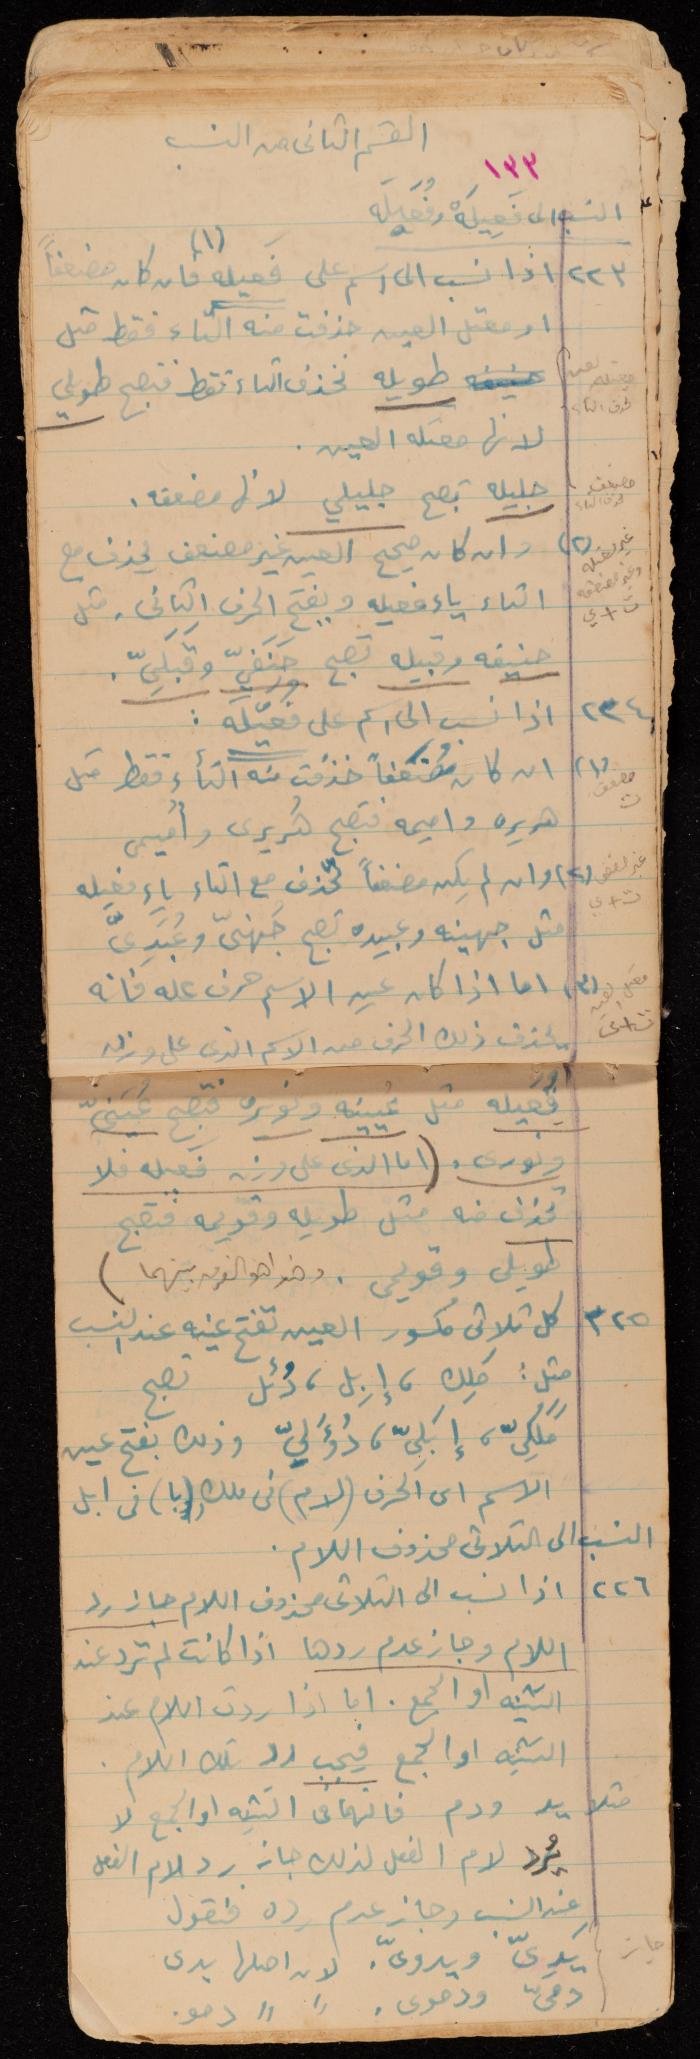 القسم الثاني من النسب
١٣٣
النسب الى فَعِيلَة وفُعَيلَه
٢٢٣ اذا نسب الى اسم على فَعيله (١) فان كان مضعفاً
او معتل العين حذفت منه التاء فقط مثل
طويله تحذف التاء فقط فتصبح طويلي
معتله العين
تحذف التاء
لانها معتله العين .
جليله تصبح جليلي لانها مضعفه .
مضعف
تحذف التاء
(٢) وان كان صحيح العين غير مضعف يحذف مع
غير معتله
وغير مضعفه
ت + ي
التاء ياء فعيله ويفتح الحرف الثاني . مثل
حنيفه وقبيله تصبح حَنَفيّ وقَبَليّ .
٢٣٤ اذا نسب الى اسم على فُعَيْلَه :
(١) ان كان مُضَعّفاً حذفت منه التاء فقط مثل
مضعف
ت
هريره واميمه فتصبح هُريرى وأُميمى
(٢) وان لم يكن مضعفاً تُحذف مع التاء ياء فعيله
غير مضعف
ت + ي
مثل جهينه وعبيده تصبح جُهَنىّ وعُبَدِىّ
(٣) اما اذا كان عين الاسم حرف عله فانه
معتل العين
ت + ي
يحذف ذلك الحرف من الاسم الذى على وزن
فُعَيله مثل عُيينه ونويره فتصبح عُيَنىّ
ونورى . (اما الذى على وزن فَعيله فلا
تحذف منه مثل طويله وقويمه فتصبح
طويلى وقويمى . وهذا هو الفرق بينهما )
٣٢٥ كل ثلاثى مكسور العين تفتح عينه عند النسب
مثل : مَلِك ، إِبِل ، دُئِل تصبح
مَلَكِىّ ، إِبَلِىّ ، دُؤَلِىّ وذلك بفتح عين
الاسم اى الحرف (لام) فى ملك و(با) فى ابل
النسب الى الثلاثى محذوف اللام .
٢٢٦ اذا نسب الى الثلاثى محذوف اللام جاز رد
اللام وجاز عدم ردها اذا كانت لم ترد عند
التثنيه او الجمع . اما اذا ردت اللام عند
التثنيه او الجمع فيجب رد تلك اللام .
مثلا يد ودم فانهما فى التثنيه او الجمع لا
يُرد لام الفعل لذلك جاز رد لام الفعل
عند النسب وجاز عدم رده فنقول
يَدِىّ ويدوىّ . لان اصلها يدى
جاز
دَمىّ ودموى . " " دمو .